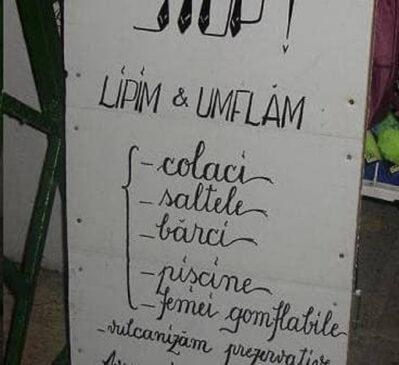 STOP!
LIPIM & UMFLĂM
- colaci
- saltele
- bărci
- piscine
- femei gomflabile
- vulcanizăm prezervative